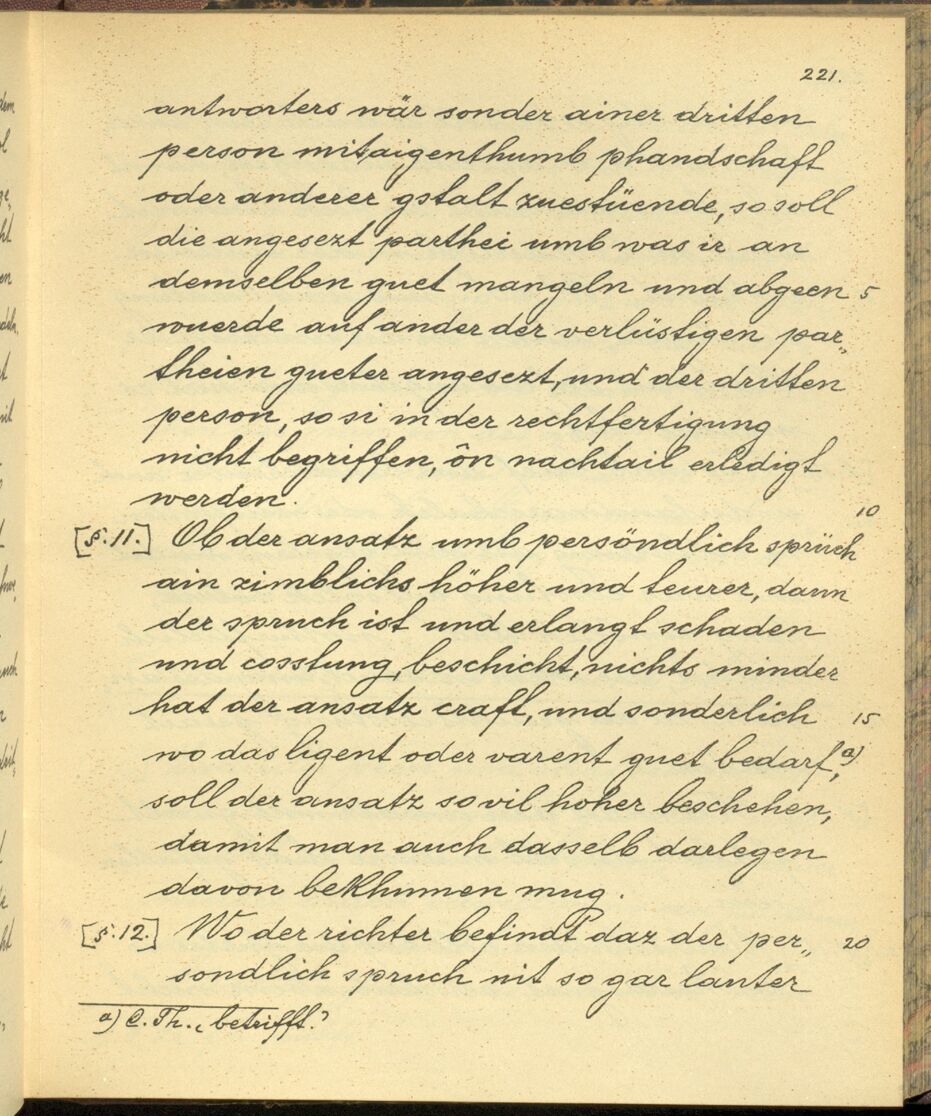 221.
antworters wär sonder ainer dritten
person mitaigenthumb phandschaft
oder anderer gstalt zuestüende, so soll
die angesezt parthei umb was ir an
demselben guet mangeln und abgeen 5
wuerde auf ander der verlüstigen par„
theien gueter angesezt, und der dritten
person, so si in der rechtfertigung
nicht begriffen, ôn nachtail erledigt
werden.
10
[§. 11.] Ob der ansatz umb persöndlich sprüch
ain zimblichs höher und teurer, dann
der spruch ist und erlangt schaden
und cosstung, beschicht, nichts minder
hat der ansatz craft, und sonderlich 15
wo das ligent oder varent guet bedarf,a)
soll der ansatz so vil hoher beschehen,
damit man auch dasselb darlegen
davon bekhumen mug.
[§. 12.] Wo der richter befindt daz der per„ 20
sondlich spruch nit so gar lauter
a) C. Th. „betrifft.“